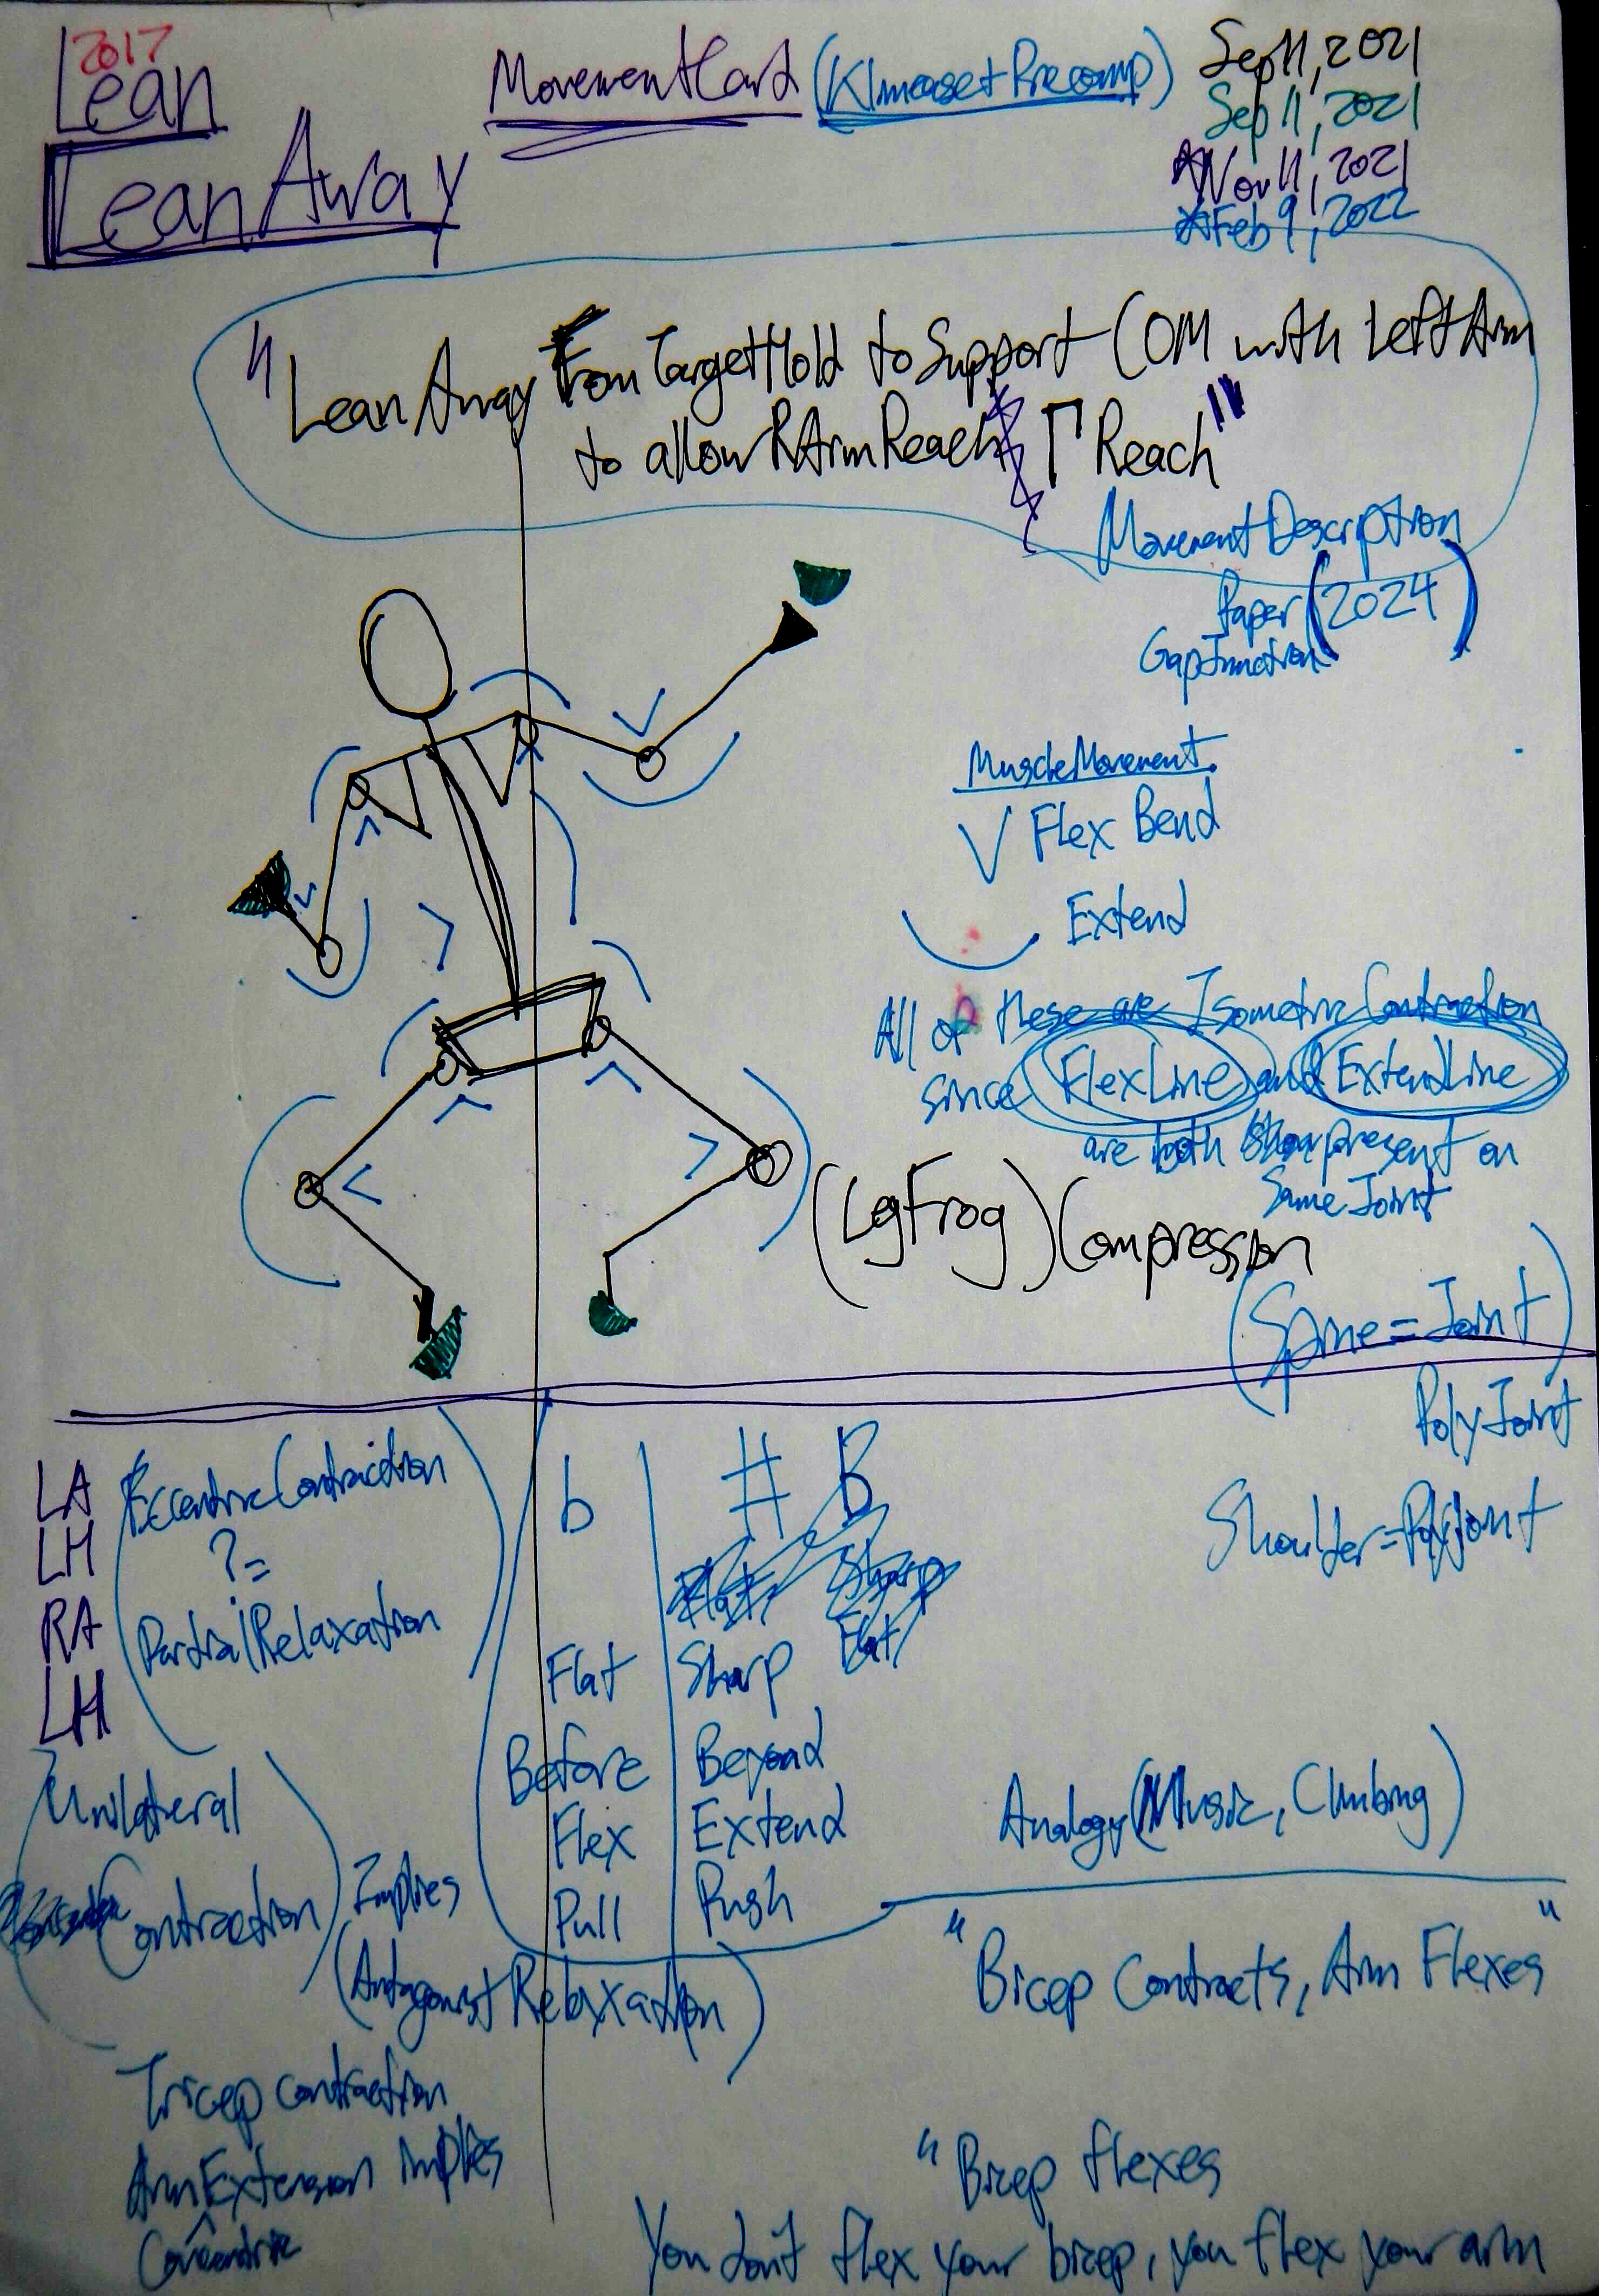 2017
Lean
LeanAway
MovementCard (Klmeaset Precomp)
Sep 11, 2021
Sep 11, 2021
*Nov 11, 2021
*Feb 9, 2022
"LeanAway From TargetHold to Support COM with Left Arm
to allow RArmReach Γ Reach"
Movement Description
Paper (2024)
GapJunction
MuscleMovement
V Flex Bend
Extend
All of these are Isometric Contraction
since FlexLine and ExtendLine
are both present on
Same Joint
(LgFrog) Compression
(Spine = Joint)
PolyJoint
Shoulder = PolyJoint
LA
LH
RA
LH
Eccentric Contraction
?=
Partial Relaxation
b # B
Flat Sharp
Flat Sharp Flat
Before Beyond
Flex Extend
Pull Push
Analogy (Music, Climbing)
Unilateral
Contraction) Implies
(Antagonist Relaxation)
"Bicep Contracts, Arm Flexes"
Tricep contraction
Arm Extension implies
^
Concentric
"Bicep flexes
You don't flex your bicep, you flex your arm